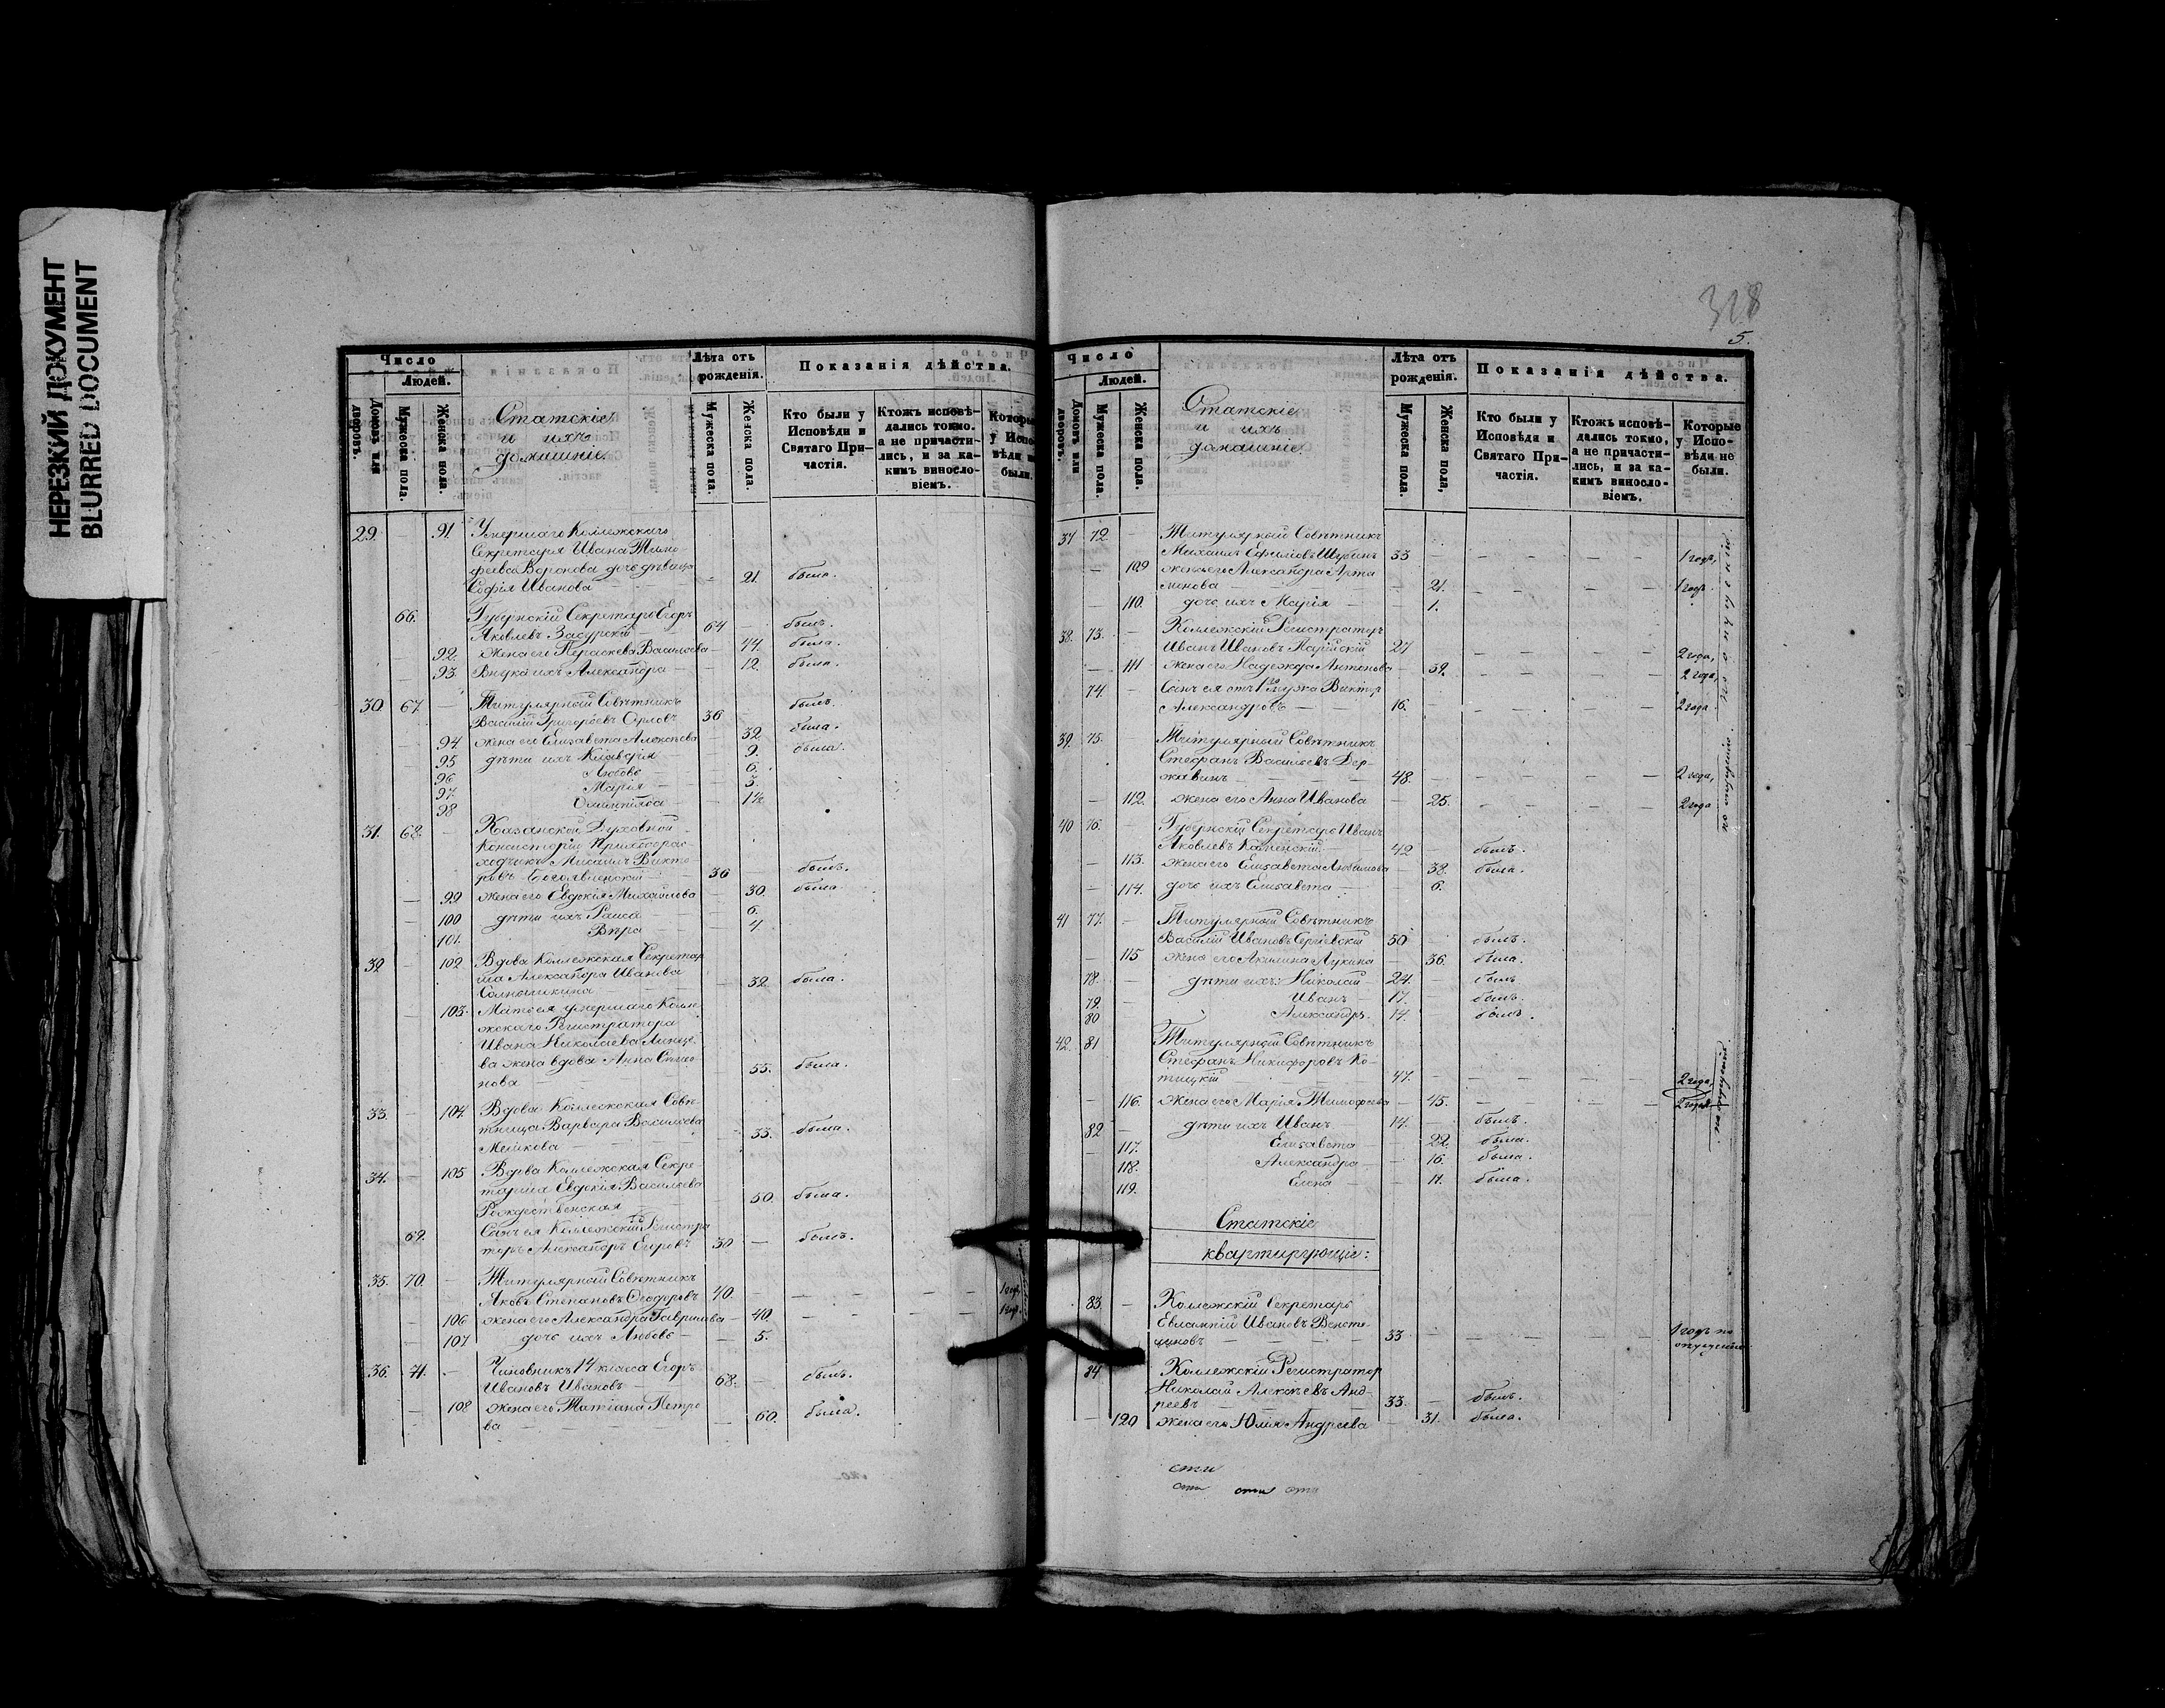 НЕРЕЗКИЙ ДОКУМЕНТ
BLURRED DOCUMENT
Число
Людей.
Домовъ или дворовъ.
Мужеска пола.
Женска пола.
Статскіе
и ихъ
домашніе.
Лѣта отъ рожденія.
Мужеска пола.
Женска пола.
Показанія дѣйства.
Кто были у Исповѣди и Святаго Причастія.
Ктожъ исповѣдались токмо, а не причастились, и за какимъ винословіемъ.
Которые у Испо-вѣди не были.
29. — 91. Умершаго Коллежскаго
Секретаря Ивана Тимо-
феева Воронова дочь дѣвица
Софія Иванова — 21. была.
66. Губернскій Секретарь Егоръ
Яковлевъ Засурскій 64 — былъ.
92. жена его Параскева Васильева — 44. была.
93. Внука ихъ Александра — 12. была.
30. 67. — Титулярный Совѣтникъ
Василій Григорьевъ Орловъ 36 былъ.
94. жена его Елизавета Алексѣева — 32. была.
95 дѣти ихъ Клавдія — 9. была.
96 Любовь — 6.
97. Марія — 3.
98 Олимпіада — 1½
31. 68. — Казанской Духовной
Консисторіи Приходорас-
ходчикъ Михаилъ Викто-
ровъ Богоявленскій — 36 былъ.
— 99 жена его Евдокія Михайлова — 30. была
100 дѣти ихъ Раиса — 6.
101. Вѣра — 4
32. — 102 Вдова Коллежская Секретар
ша Александра Иванова
— 32. была.
— 103. Мать ея умершаго Колле-
жскаго Регистратора
Ивана Николаева
ва жена вдова Анна Симо-
нова — 55. была.
33. — 104. Вдова Коллежская Совѣ-
тница Варвара Васильева
33. была.
34. — 105 Вдова Коллежская Секре-
тарша Евдокія Васильева
Рождественская — 50. была.
69. Сынъ ея Коллежскій Регистра
торъ Александръ Егоровъ 30 — былъ.
35. 70. — Титулярный Совѣтникъ
Яковъ Степановъ Ѳеодоровъ 40. — 1 годъ
— 106 жена его Александра Гаврилова — 40. 1 годъ.
— 107 дочь ихъ Любовь — 5.
36. 71. — Чиновникъ 14 класса Егоръ
Ивановъ Ивановъ — 68. — былъ.
— 108 жена его Татіана Петро
ва — 60. была.
328
5.
Число
Людей.
Домовъ или дворовъ.
Мужеска пола.
Женска пола.
Статскіе
и ихъ
домашніе.
Лѣта отъ рожденія.
Мужеска пола.
Женска пола,
Показанія дѣйства.
Кто были у Исповѣди и Святаго Причастія.
Ктожъ исповѣдались токмо, а не причастились, и за какимъ винословіемъ.
Которые у Испо-вѣди не были.
37 72. — Титулярный Совѣтникъ
Михаилъ Ефимовъ Шубинъ 33 — 1 годъ,
— 109 жена его Александра Арта
монова — 21. 1 годъ.
— 110. дочь ихъ Марія — 1.
38. 73. — Коллежскій Регистраторъ
Иванъ Ивановъ 27 2 года,
— 111 жена его Надежда Антонова — 39. 2 года,
74. — Сынъ ея отъ 1го мужа Викторъ
Александровъ — 16. 2 года
39. 75. Титулярный Совѣтникъ
Стефанъ Васильевъ Дер-
жавинъ — 48. 2 года,
— 112. жена его Анна Иванова — 25. 2 года
по опущенію
40 76. — Губернскій Секретарь Иванъ
Яковлевъ 42 — былъ.
— 113. жена его Елизавета Любимова — 38. была.
— 114. дочь ихъ Елизавета — 6.
41 77. — Титулярный Совѣтникъ
Василій Ивановъ Сергіевскій 50 — былъ.
— 115 жена его Акилина Лукина — 36. была.
78. — дѣти ихъ: Николай 24. — былъ
79. — Иванъ 17. — былъ.
80 Александръ. 14. — былъ.
42. 81 Титулярный Совѣтникъ
Стефанъ Никифоровъ Ко-
тицкій — 47. 2 года,
— 116. жена его Марія Тимофеева — 45. 2 года
по опущенію.
82 — дѣти ихъ Иванъ 14. — былъ.
— 117. Елизавета — 22. была.
118. Александра — 16. была.
119. Елена — 11. была.
Статскіе
квартирующіе:
83. — Коллежскій Секретарь
Евлампій Ивановъ
33 — 1 годъ по
опущенію
84 Коллежскій Регистратор
Николай Алексѣевъ Анд-
реевъ — 33. — былъ.
— 120 жена его Юлія Андреева — 31. была.
сти
сти сти сти